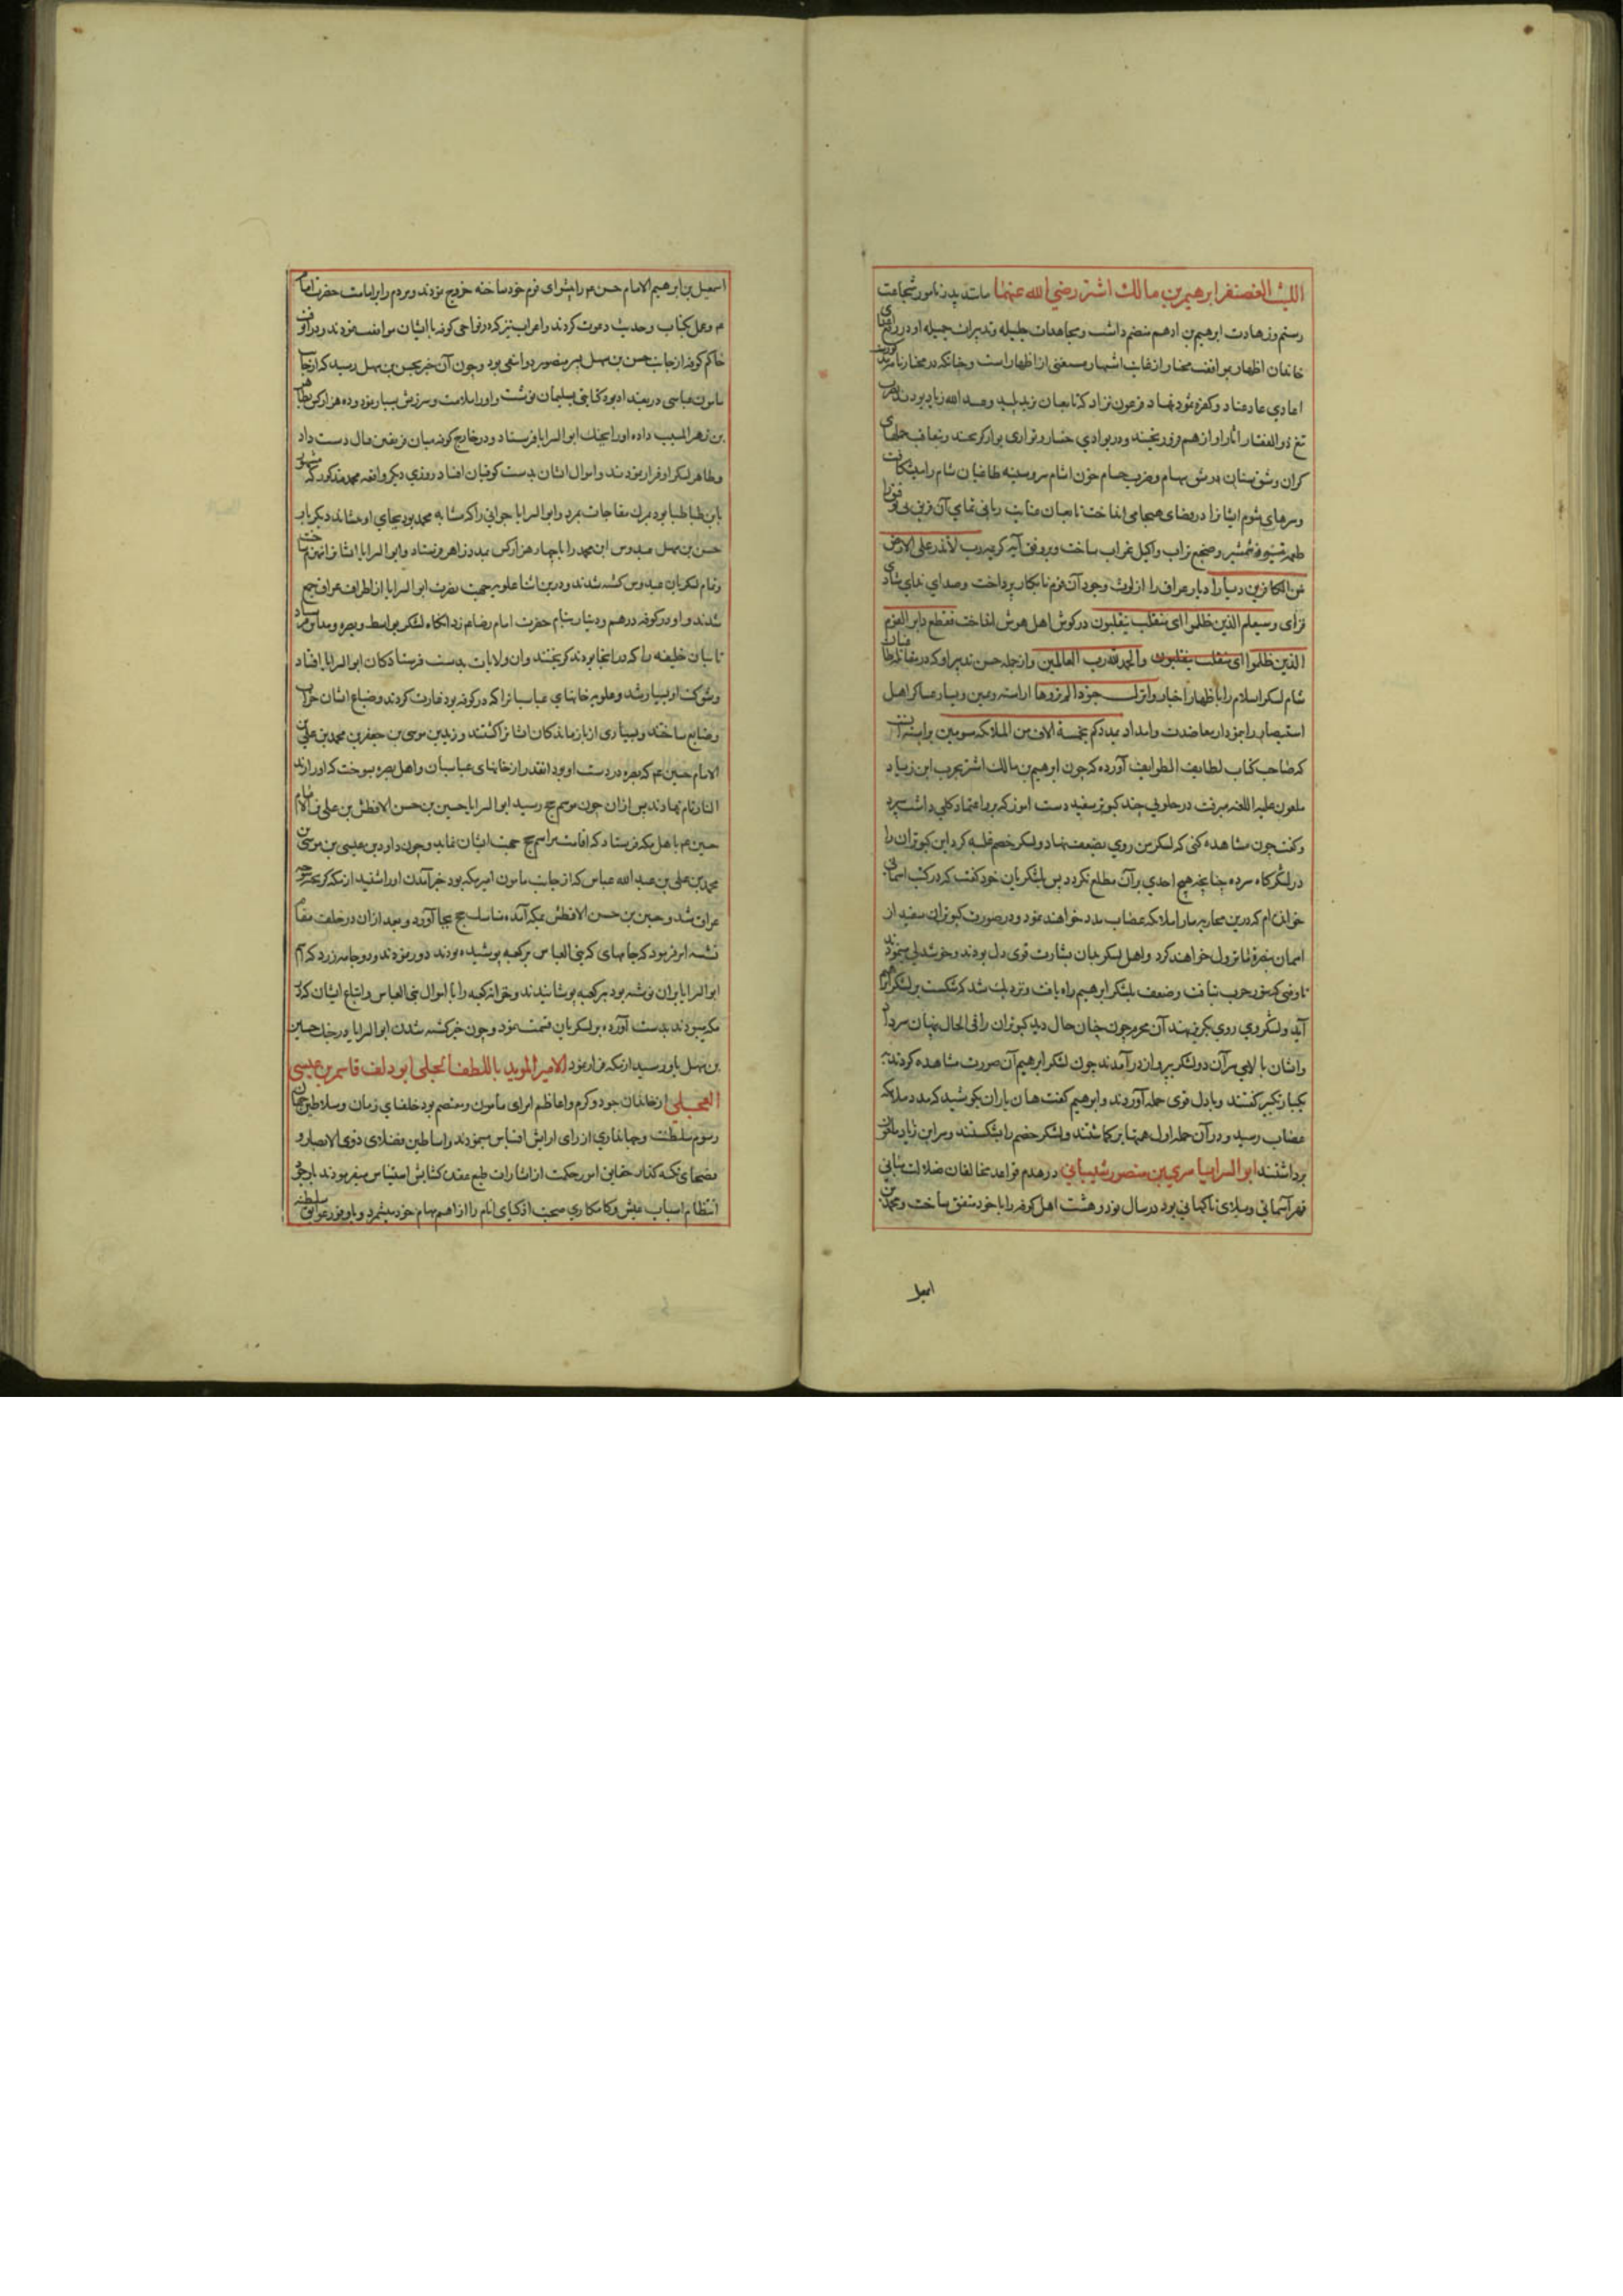 الليث الغضنفر ابرهيم بن مالك اشتر رضي الله عنهما مانند پدر نامور شجاعت
رستم و زهادت ابرهيم بن ادهم منضم داشت و مجاهدات جليله و تدبيرات جميله او در
خاندان اظهار موافقت مختار از غايت اشتهار مستغنى از اظهار است و چنانكه در مختارنامه
اعادي عاد عناد و كفره ثمود نهاد فرعون نژاد كه تابعان يزيد پليد و عبد الله زياد بودند
تيغ ذو الفقار آثار او از هم فرو ريختند و در بوادي خسار و تواري
كران و شق سنان و رشق سهام و ضرب حسام خون اشام سر و سينه طاغيان شام را ميشكافت
و سرهاى شوم ايشانرا در فضاى هيجا مى انداخت تا بعنايت ربانى تمامي آن
طعمه شير و شمشير و ضجيع تراب و اكيل غراب ساخت و بر وفق آيه كريمه رب لا تذر على الارض
من الكافرين ديارا ديار عراق را از لوث وجود آن قوم نابكار پرداخت و صداي نداى
و سيعلم الذين ظلموا اى منقلب ينقلبون در گوش اهل هوش انداخت فقطع دابر القوم
الذين ظلموا اى منقلب ينقلبون والحمد لله رب العالمين و از جمله حسن تدبير او كه در مقاتله
شام لشكر اسلام را باظهار اخبار و انزل جنودا لم تروها اراسته و يمين و يسار عساكر اهل
استبصار را بنمودار معاضدت و امداد يمددكم بخمسة الاف من الملائكة مسومين
كه صاحب كتاب لطايف الطوايف آورده كه چون ابرهيم بن مالك اشتر بحرب ابن زياد
ملعون عليه اللعنه ميرفت در خلوتى چند كبوتر سفيد دست اموز كه برو اعتماد كلى داشت سپرد
و گفت چون مشاهده كنى كه لشكر من روي بضعف نهاد و لشكر خصم غلبه كرد اين كبوتران را
در لشكرگاه سر ده چنانچه هيچ احدي بر آن مطلع نگردد پس بلشكريان خود گفت كه در كتب اسمانى
خوانده ام كه درين محاربه ما را ملائكه غضاب مدد خواهند نمود و در صورت كبوتران سفيد از
اسمان بنصرة ما نزول خواهند كرد و اهل لشكر بدان بشارت قوى دل بودند و خوشدلى مينمودند
تا وقتى كه تنور حرب تافت و ضعف بلشكر ابرهيم راه يافت و نزديك شد كه شكست بر لشكر
آيد و لشكر وي روي بگريز نهند آن محرم چون چنان حال ديد كبوتران را فى الحال پنهان سر داد
و ايشان بالاى سر آن دو لشكر بپرواز درآمدند چون لشكر ابرهيم آن صورت مشاهده كردند
بيكبار تكبير گفتند و بادل قوى حمله آوردند و ابرهيم گفت هان ياران بكوشيد كه مدد ملائكه
غضاب رسيد و در آن حمله اول همتها بركماشتند و لشكر خصم را بشكستند و سر ابن زياد ملعون
برداشتند ابو السرايا سري بن منصور شيباني در هدم قواعد مخالفان ضلالت مبانى
قهر آسمانى و بلاى ناگهانى بود در سال نود و هشت اهل كوفه را با خود متفق ساخت و محمد بن
اسمعيل
اسمعيل بن ابرهيم الامام حسن م را پيشواى قوم خود ساخته خروج نمودند و مردم را بامامت حضرت امام
م و عمل بكتاب و حديث دعوت كردند و اعراب نيز كه در نواحى كوفه با ايشان موافقت نمودند
حاكم كوفه از جانب حسن بن سهل پسر منصور دوانقى بود و چون آن خبر بحسن بن سهل رسيد كه از جانب
مامون عباسى در بغداد بود كتابتى بسليمان نوشت و او را ملامت و سرزنش بسيار نمود و ده هزار كس
بن زهير المسيب داده او را بجنك ابو السرايا فرستاد و در خارج كوفه ميان فريقين قتال دست داد
و ظاهر لشكر او فرار نمودند و اموال ايشان بدست كوفيان افتاد و روزي ديگر واقعه محمد مذكور كه
بابن طباطبا بود بمرك مفاجات بمرد و ابو السرايا جوانى را كه مشابه محمد بود بجاي او نشاند ديگر بار
حسن بن سهل عبدوس ابن محمد را با چهار هزار كس بمدد زاهر فرستاد و ابو السرايا ايشانرا منهزم ساخت
و تمام لشكريان عبدوس كشته شدند و درين اثنا علويه جهت نصرت ابو السرايا از اطراف عراق جمع
شدند و او در كوفه درهم و دينار بنام حضرت امام رضا م زد انگاه لشكر بواسط و بصره و مداين فرستاد
نايبان خليفه را كه در انجا بودند گريختند و ان ولايات بدست فرستادگان ابو السرايا افتاد
و شوكت او بسيار شد و علويه خانهاي عباسيانرا كه در كوفه بود غارت كردند و ضياع ايشان خراب
و ضايع ساختند و بسيارى از بازماندگان ايشانرا كشتند و زيد بن موسى بن جعفر بن محمد بن على بن
الامام حسين م كه بصره در دست او بود انقدر از خانهاى عباسيان و اهل بصره بسوخت كه او را زيد
النار نام نهادند پس ازان چون موسم حج رسيد ابو السرايا حسين بن حسن الافطس بن على بن الامام
حسين م با هل مكه فرستاد كه اقامت مراسم حج جهت ايشان نمايد و چون داود بن عيسى بن موسى بن
محمد بن على بن عبد الله عباس كه از جانب مامون امير مكه بود خبر آمدن او را شنيد از مكه گريخته
عراق شد و حسين بن حسن الافطس بمكه آمده مناسك حج بجا آورد و بعد ازان در خلف مقام
نشسته امر فرمود كه جامهاى كه بنى العباس بر كعبه پوشيده بودند دور نمودند و دو جامه زرد كه نام
ابو السرايا بران نوشته بود بر كعبه پوشانيدند و خزانه كعبه را با اموال بنى العباس و اتباع ايشان كه در
مكه ميبودند بدست آورده بر لشكريان قسمت نمود و چون خبر كشته شدن ابو السرايا در جنك حسن
بن سهل باو رسيد از مكه فرار نمود الامير المويد باللطف الجلى ابو دلف قاسم بن عيسى
العجلى از خاندان جود و كرم و اعاظم امراى مامون و معتصم بود خلفاي زمان و سلاطين جهان
رسوم سلطنت و جهانداري از راى ارايش اقتباس مينمودند و اساطين فضلاى ذوى الابصار و
فصحاى نكته گذار حقايق امور حكمت از اشارات طبع عقده گشايش استيناس ميفرمودند
انتظام اسباب عيش و كامكاري صحبت اذكياى انام را از اهم مهام خود ميشمرد و با وفور عوايق سلطنت